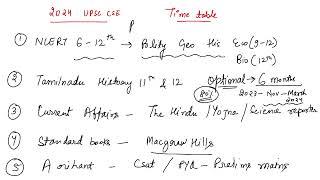 2024 UPSC CSE Time table
P
① NCERT 6-12th → Polity Geo His Eco (9-12)
Bio (12th)
② Tamilnadu History 11th & 12 Optional → 6 month
80% 2023 - Nov - March
2024
③ Current Affairs - The Hindu / Yojna / Science reporter
④ Standard books - Macgraw Hills
⑤ Arihant - Csat / PYQ - Prelims mains